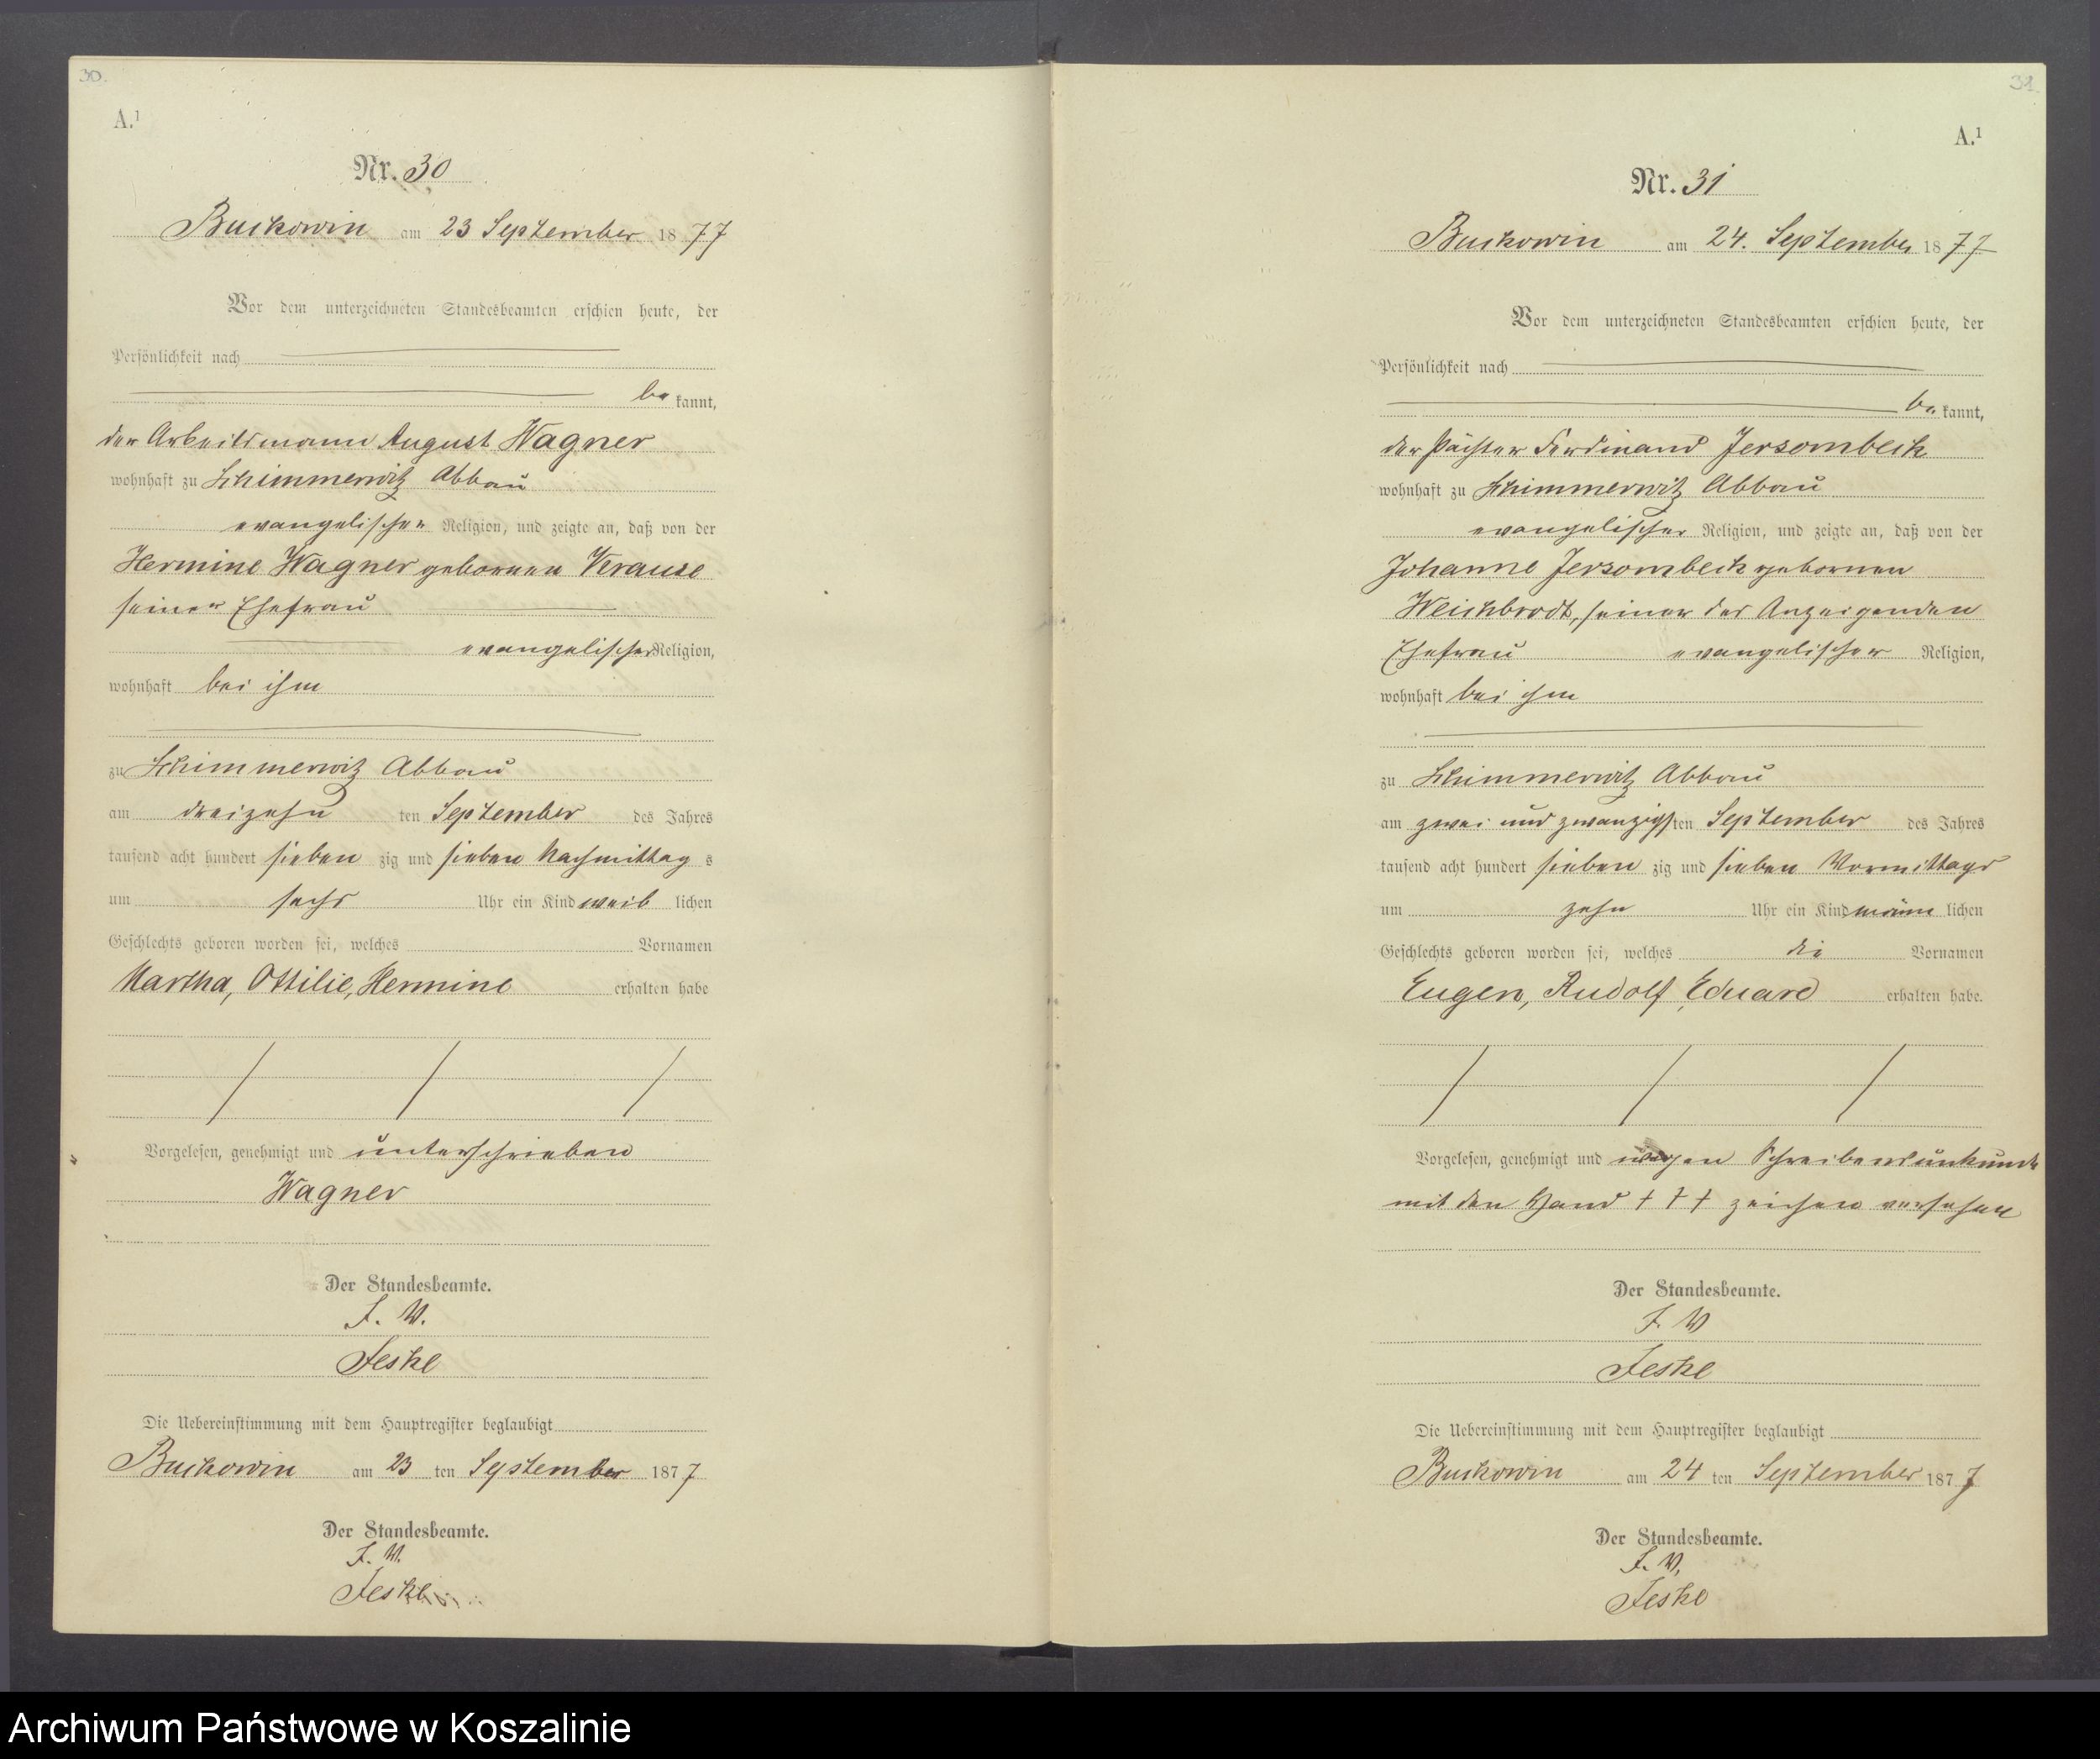 30.
A.¹
Nr. 30
Buckowin am 23 September 1877
Vor dem unterzeichneten Standesbeamten erschien heute, der
Persönlichkeit nach
be kannt,
der Arbeitsmann August Wagner
wohnhaft zu Schimmerwitz Abbau
evangelischer Religion, und zeigte an, daß von der
Hermine Wagner gebornen Krause
seiner Ehefrau
evangelischer Religion,
wohnhaft bei ihm
zu Schimmerwitz Abbau
am dreizehn ten September des Jahres
tausend acht hundert sieben zig und sieben Nachmittag s
um sechs Uhr ein Kind weib lichen
Geschlechts geboren worden sei, welches Vornamen
Martha, Ottilie, Hermine erhalten habe
Vorgelesen, genehmigt und unterschrieben
Wagner
Der Standesbeamte.
I. V.
Jeske
Die Uebereinstimmung mit dem Hauptregister beglaubigt
Buckowin am 23 ten September 1877
Der Standesbeamte.
I. V.
Jeske
31.
A.¹
Nr. 31
Buckowin am 24. September 1877
Vor dem unterzeichneten Standesbeamten erschien heute, der
Persönlichkeit nach
be kannt,
der Pächter Ferdinand Jersombeck
wohnhaft zu Schimmerwitz Abbau
evangelischer Religion, und zeigte an, daß von der
Johanne Jersombeck gebornen
Weichbrodt, seiner des Anzeigenden
Ehefrau evangelischer Religion,
wohnhaft bei ihm
zu Schimmerwitz Abbau
am zwei und zwanzigsten September des Jahres
tausend acht hundert sieben zig und sieben Vormittags
um zehn Uhr ein Kind männ lichen
Geschlechts geboren worden sei, welches die Vornamen
Eugen, Rudolf, Eduard erhalten habe.
Vorgelesen, genehmigt und wegen Schreibensunkunde
mit den Hand † † † zeichen versehen
Der Standesbeamte.
I. V
Jeske
Die Uebereinstimmung mit dem Hauptregister beglaubigt
Buckowin am 24 ten September 1877
Der Standesbeamte.
I. V,
Jeske
Archiwum Państwowe w Koszalinie